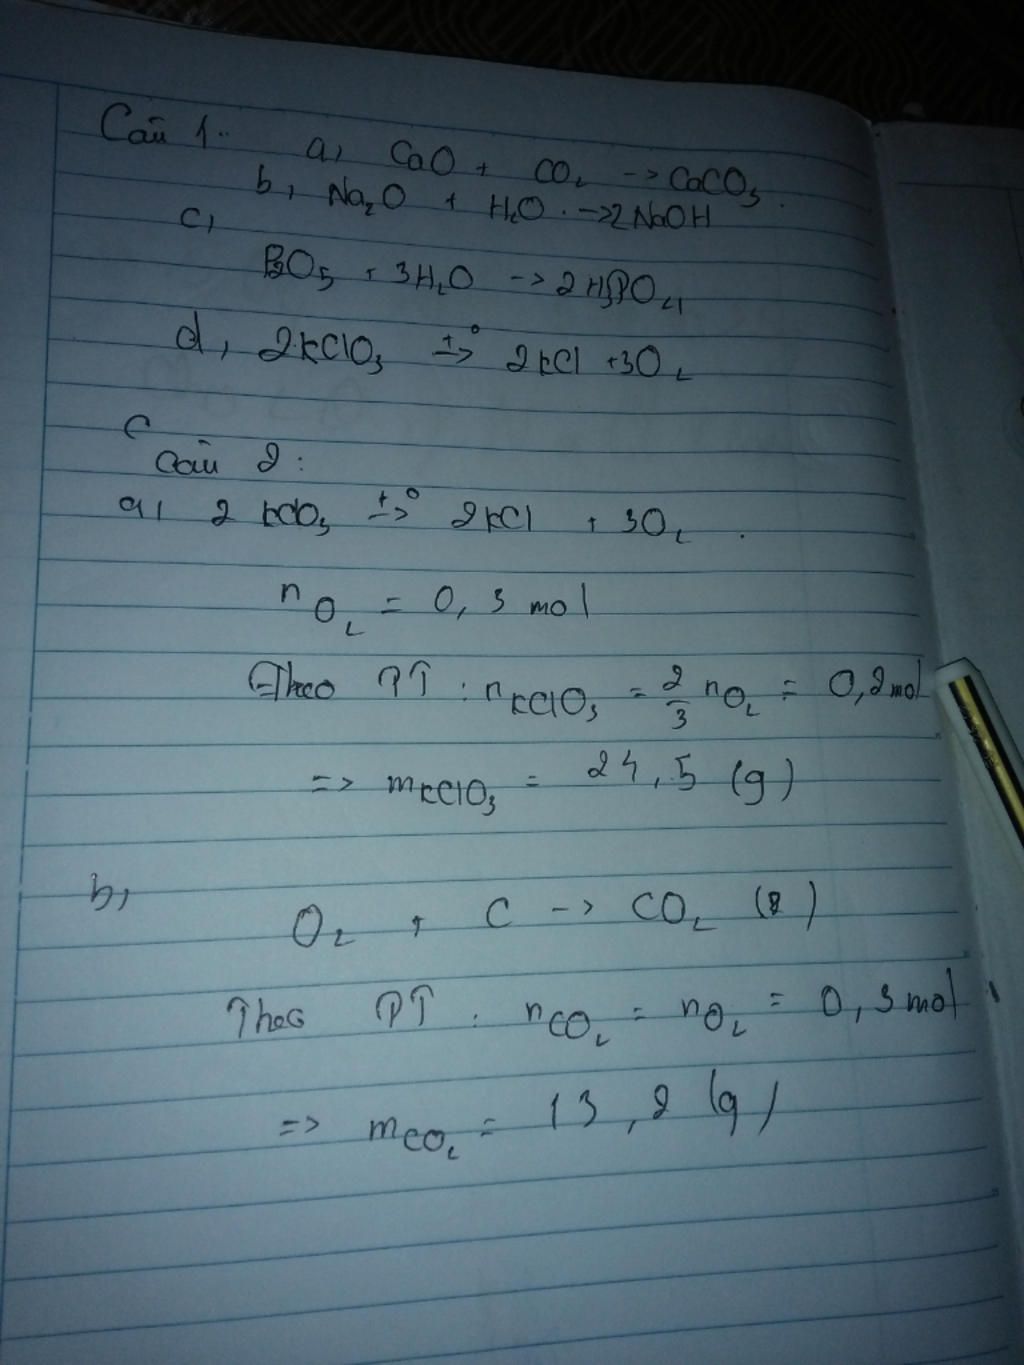 Câu 1:
a, CaO + CO₂ -> CaCO₃.
b, Na₂O + H₂O. -> 2NaOH
c,
P₂O₅ + 3H₂O -> 2H₃PO₄
d, 2KClO₃ t°-> 2KCl + 3O₂
C
Câu 2:
a, 2 KClO₃ t°-> 2KCl + 3O₂.
nO₂ = 0,3 mol
Theo PT : nKClO₃ = 2/3 nO₂ = 0,2mol
=> mKClO₃ = 24,5 (g)
b,
O₂ + C -> CO₂ (2)
Theo PT : nCO₂ = nO₂ = 0,3mol
=> mCO₂ = 13,2 (g)